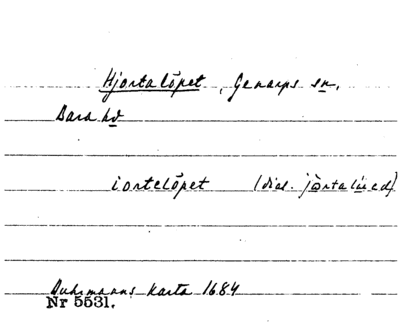 Hjortalöpet, Genarps sn,
Bara hd
iortelöpet (dial. jörtalöed)
Buhrmanns karta 1684
Nr 5531.